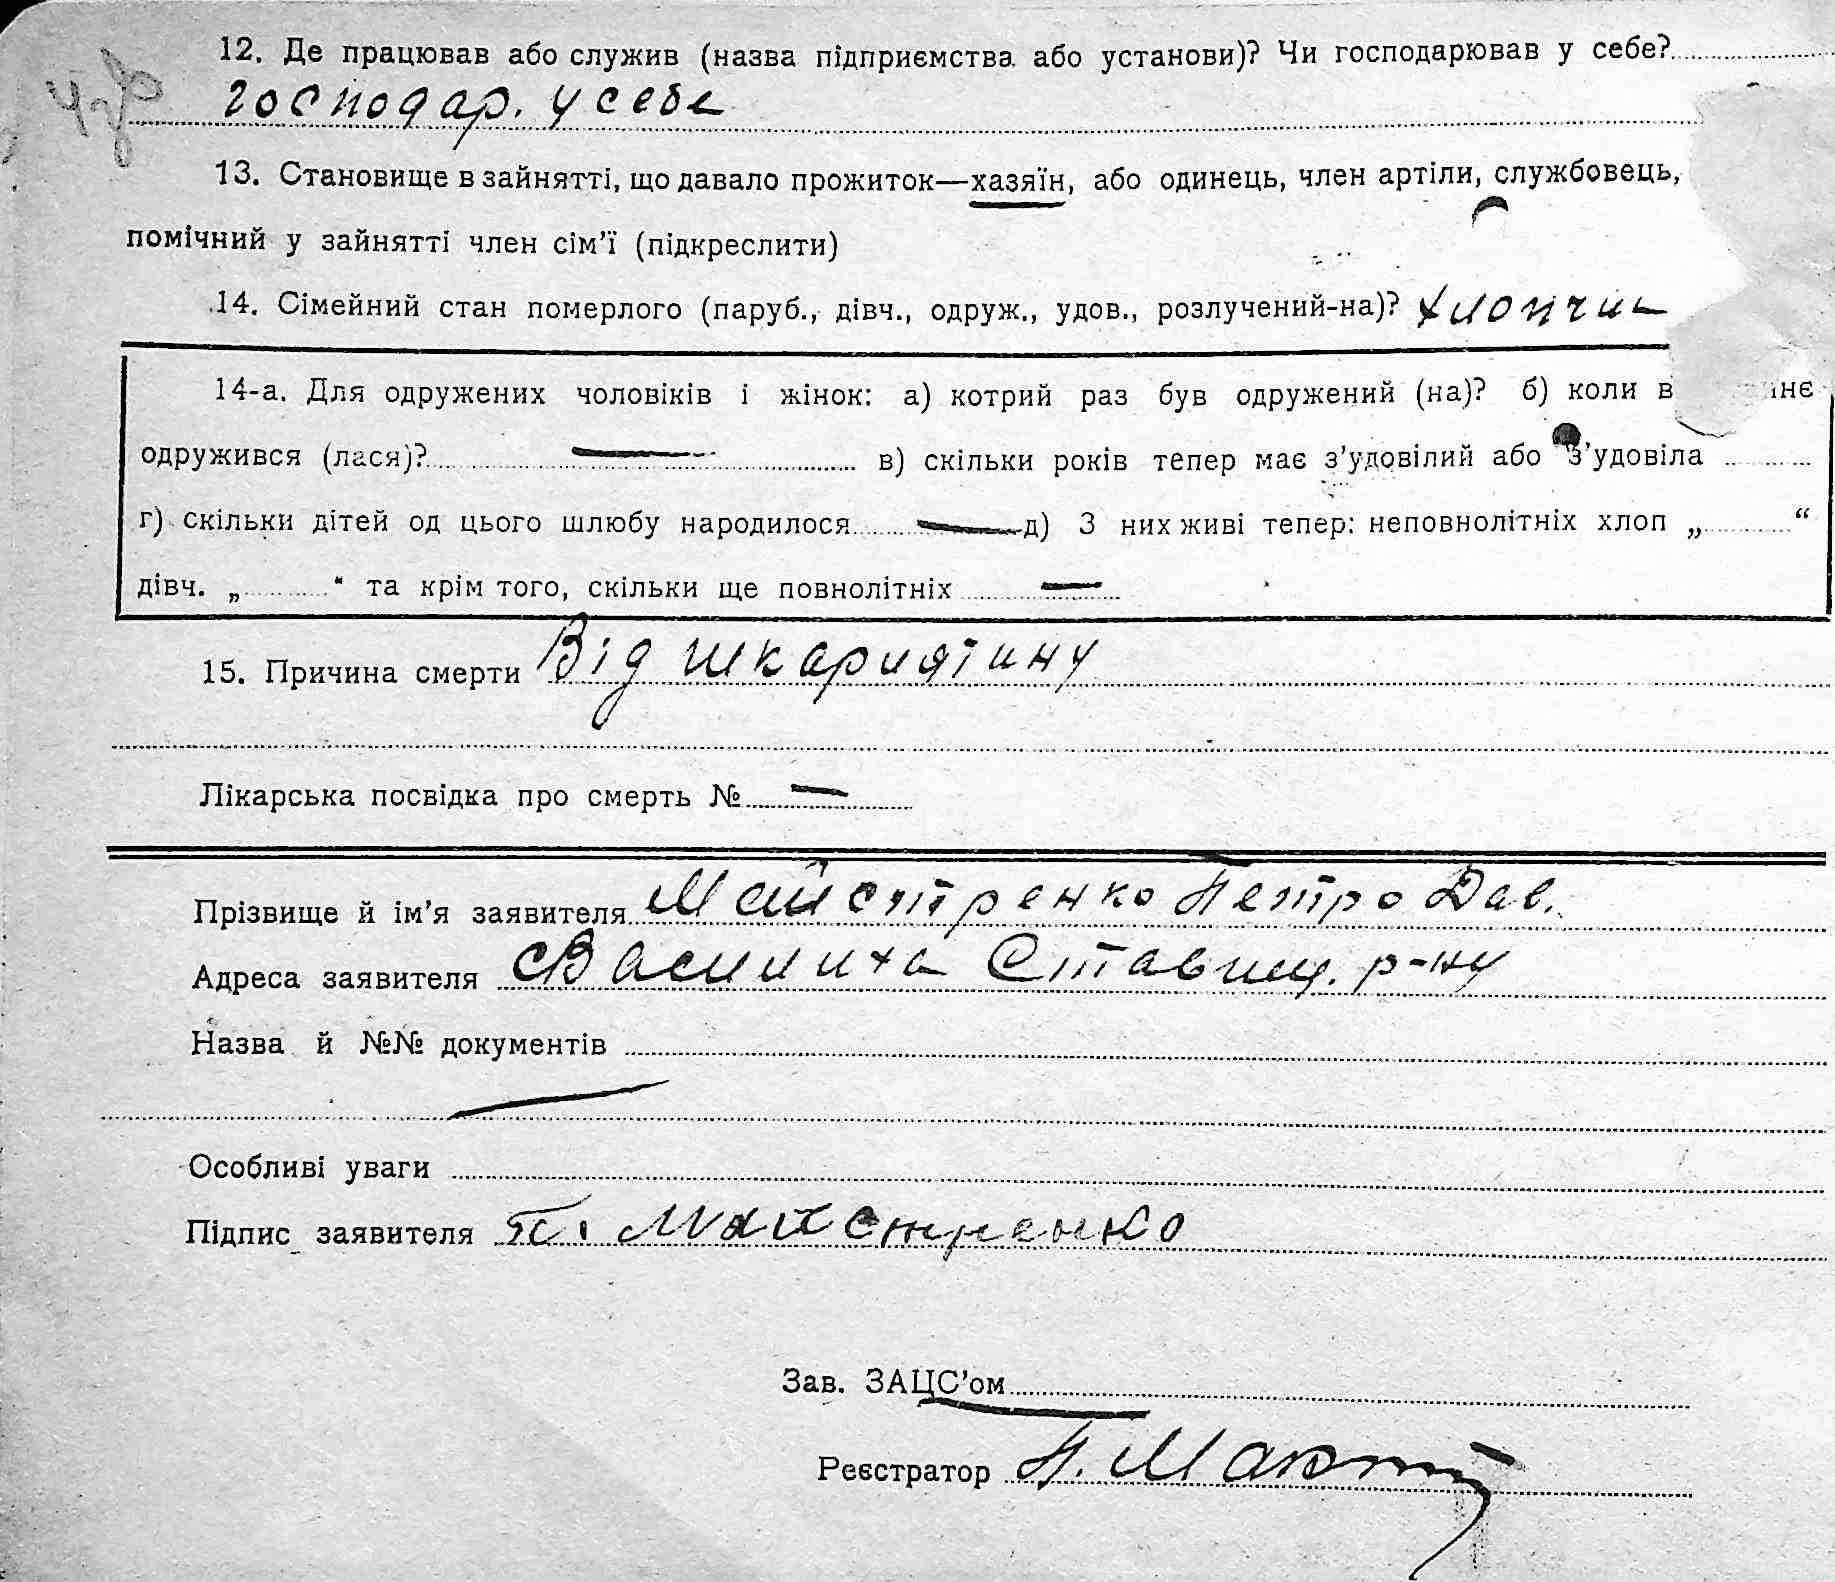 12. Де працював або служив (назва підприємства або установи)? Чи господарював у себе?
господар. у себе
13. Становище в зайнятті, що давало прожиток—хазяїн, або одинець, член артіли, службовець,
помічний у зайнятті член сім’ї (підкреслити)
14. Сімейний стан померлого (паруб., дівч., одруж., удов., розлучений-на)? хлопчик
14-а. Для одружених чоловіків і жінок: а) котрий раз був одружений (на)? б) коли в
одружився (лася)? — в) скільки років тепер має з’удовілий або з’удовіла
г) скільки дітей од цього шлюбу народилося — д) З них живі тепер: неповнолітніх хлоп „ “
дівч. „ “ та крім того, скільки ще повнолітніх —
15. Причина смерти Від шкарлятину
Лікарська посвідка про смерть № —
Прізвище й ім’я заявителя Майстренко Петро Дав.
Адреса заявителя с Василиха Ставищ. р-ну
Назва й №№ документів
—
Особливі уваги
Підпис заявителя П. Майстренко
Зав. ЗАЦС’ом
Реєстратор